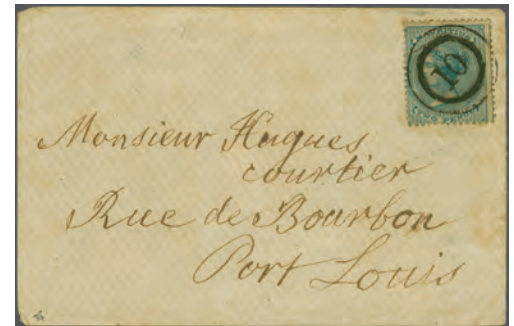 10
Monsieur Hugues
courtier
Rue de Bourbon
Port Louis